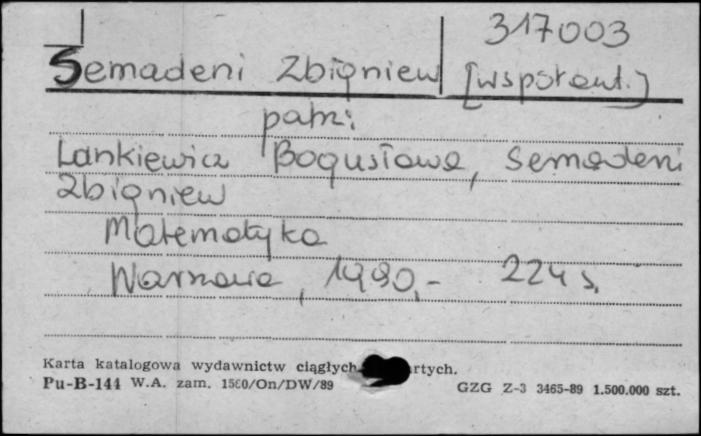 317003
Semadeni Zbigniew [współaut.]
patrz
Lankiewicz Bogusława, Semadeni
Zbigniew
Matematyka
Warszawa, 1990,- 224 s.
Karta katalogowa wydawnictw ciągłych artych.
Pu-B-144 W.A. zam. 1560/On/DW/89 GZG Z-3 3465-89 1.500.000 szt.